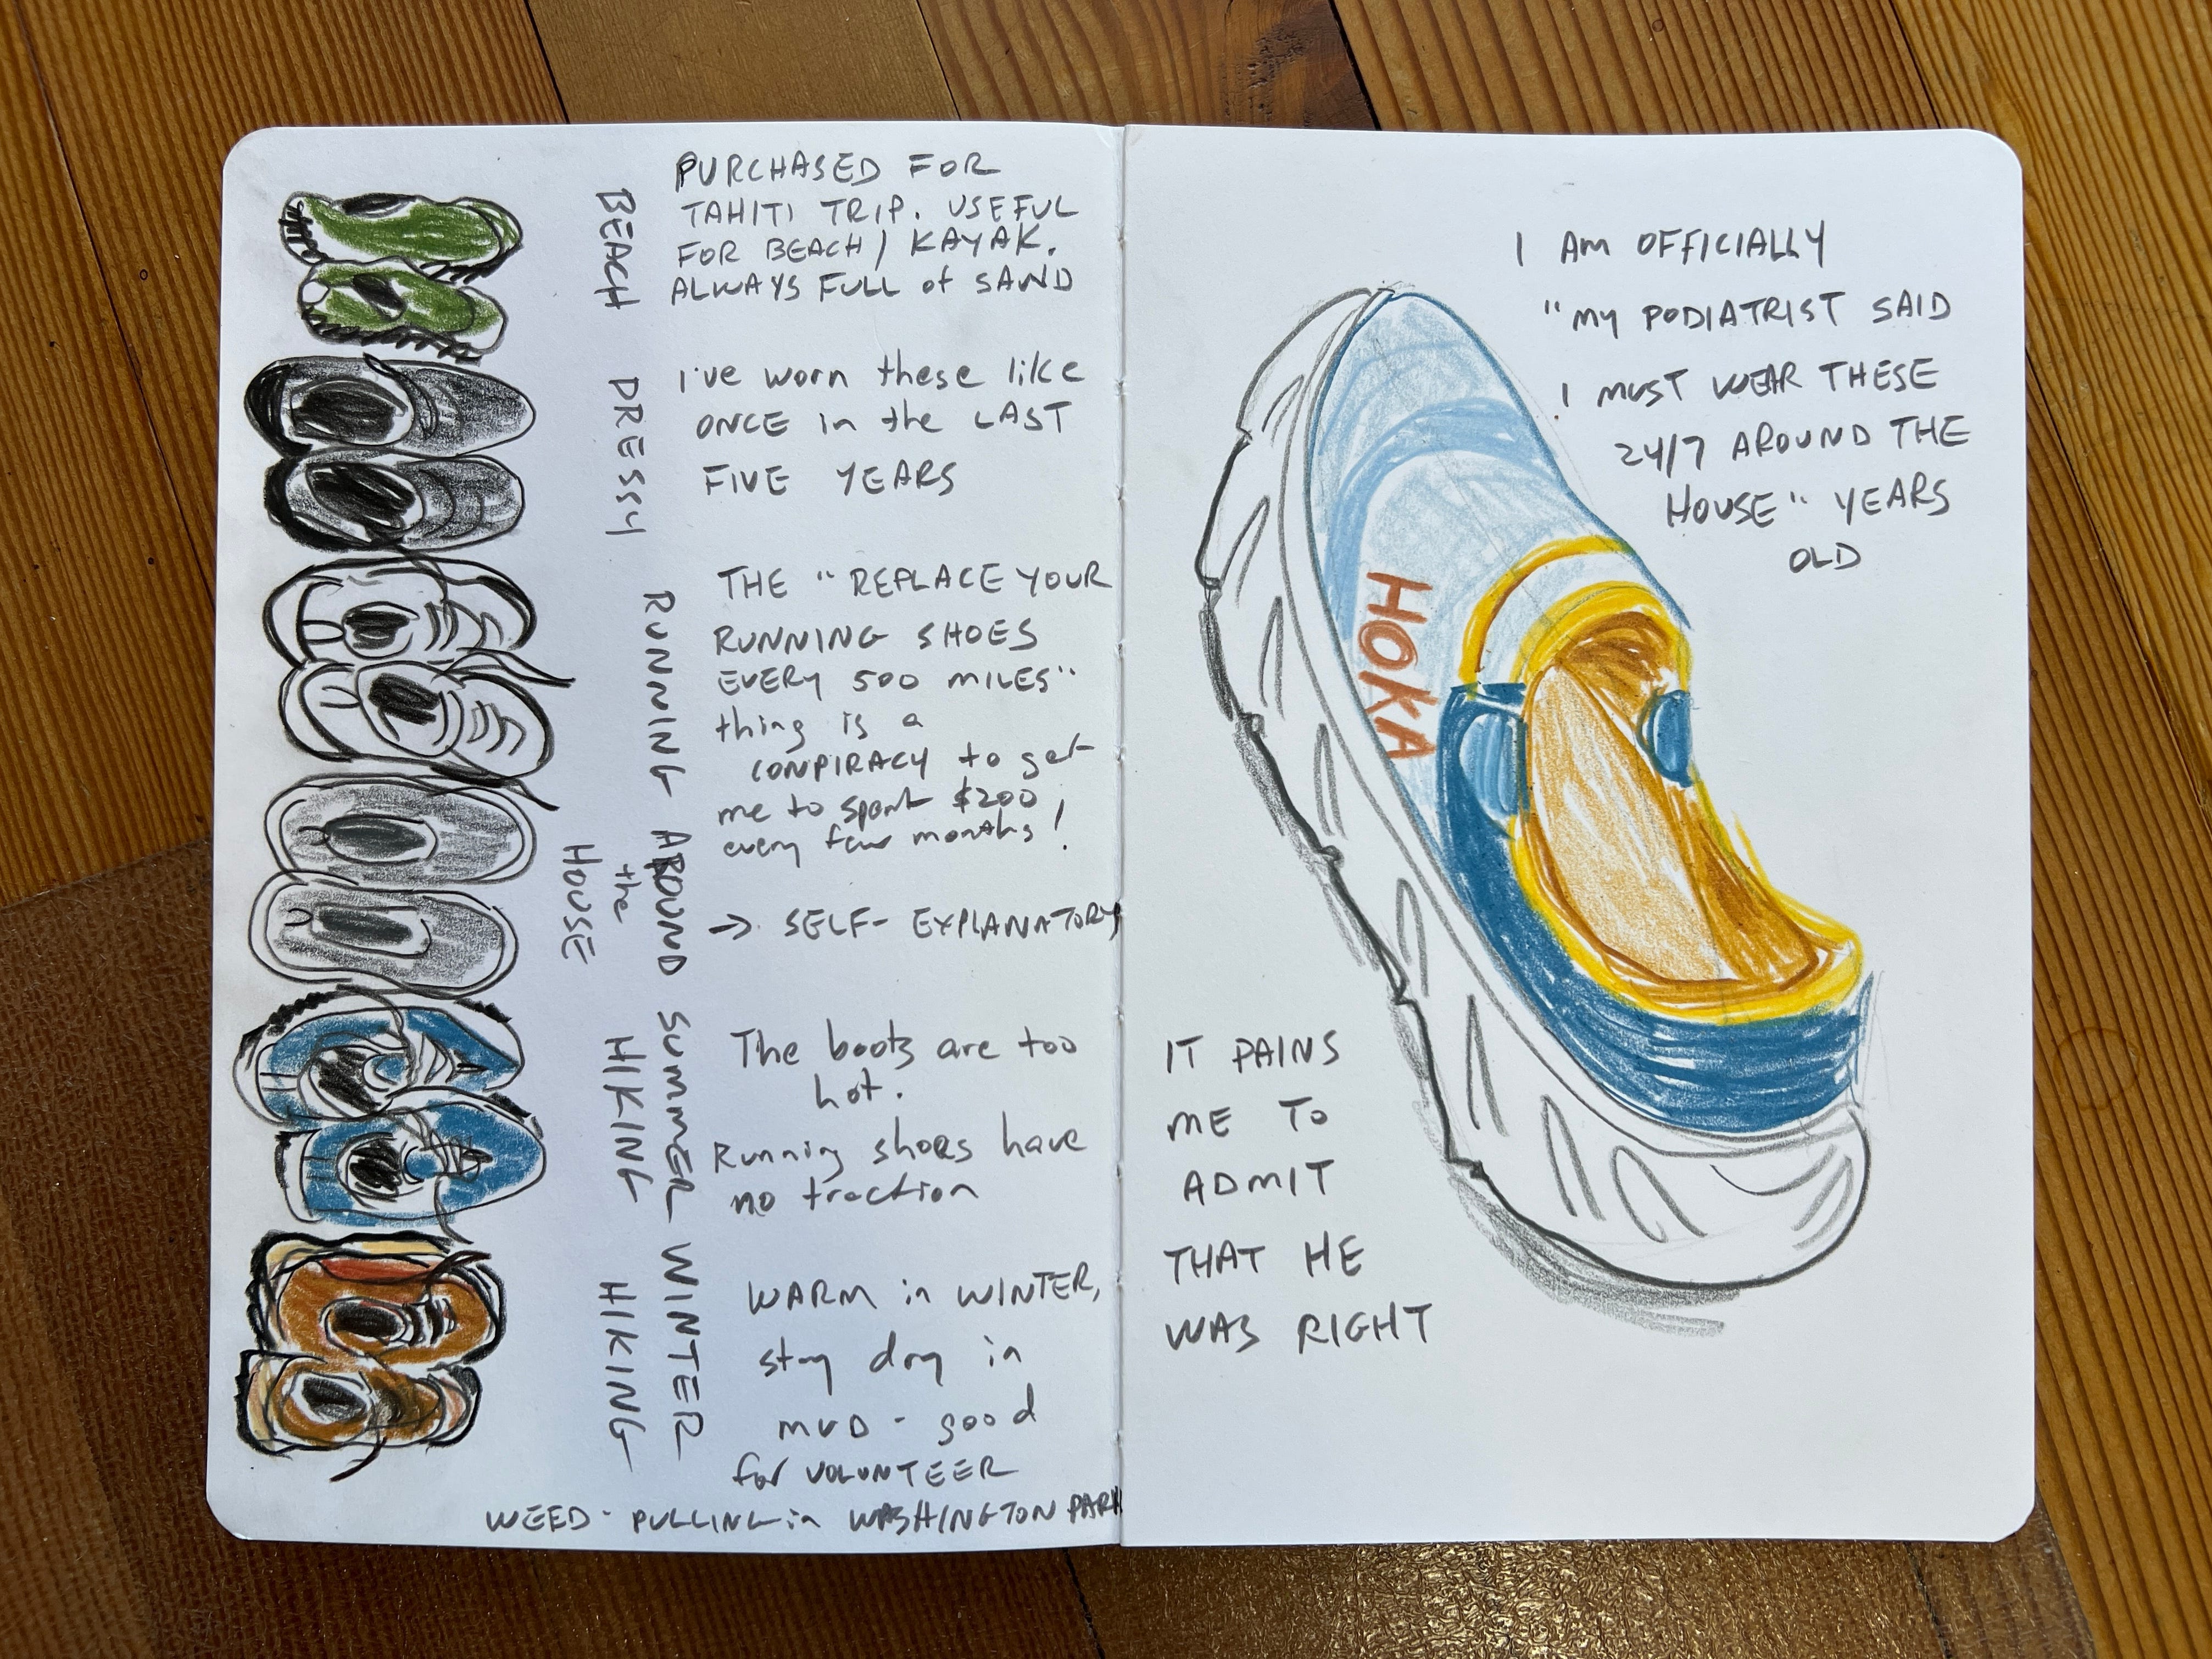 BEACH
PURCHASED FOR
TAHITI TRIP. USEFUL
FOR BEACH / KAYAK.
ALWAYS FULL of SAND
DRESSY
I've worn these like
ONCE in the LAST
FIVE YEARS
RUNNING
THE "REPLACE YOUR
RUNNING SHOES
EVERY 500 MILES"
thing is a
CONPIRACY to get
me to spent $200
every few months!
AROUND
the
HOUSE
→ SELF-EXPLANATORY
SUMMER
HIKING
The boots are too
hot.
Running shoes have
no traction
WINTER
HIKING
WARM in WINTER,
stay dry in
MUD - good
for VOLUNTEER
WEED-PULLING in WASHINGTON PARK
I AM OFFICIALLY
"MY PODIATRIST SAID
I MUST WEAR THESE
24/7 AROUND THE
HOUSE" YEARS
OLD
HOKA
IT PAINS
ME TO
ADMIT
THAT HE
WAS RIGHT